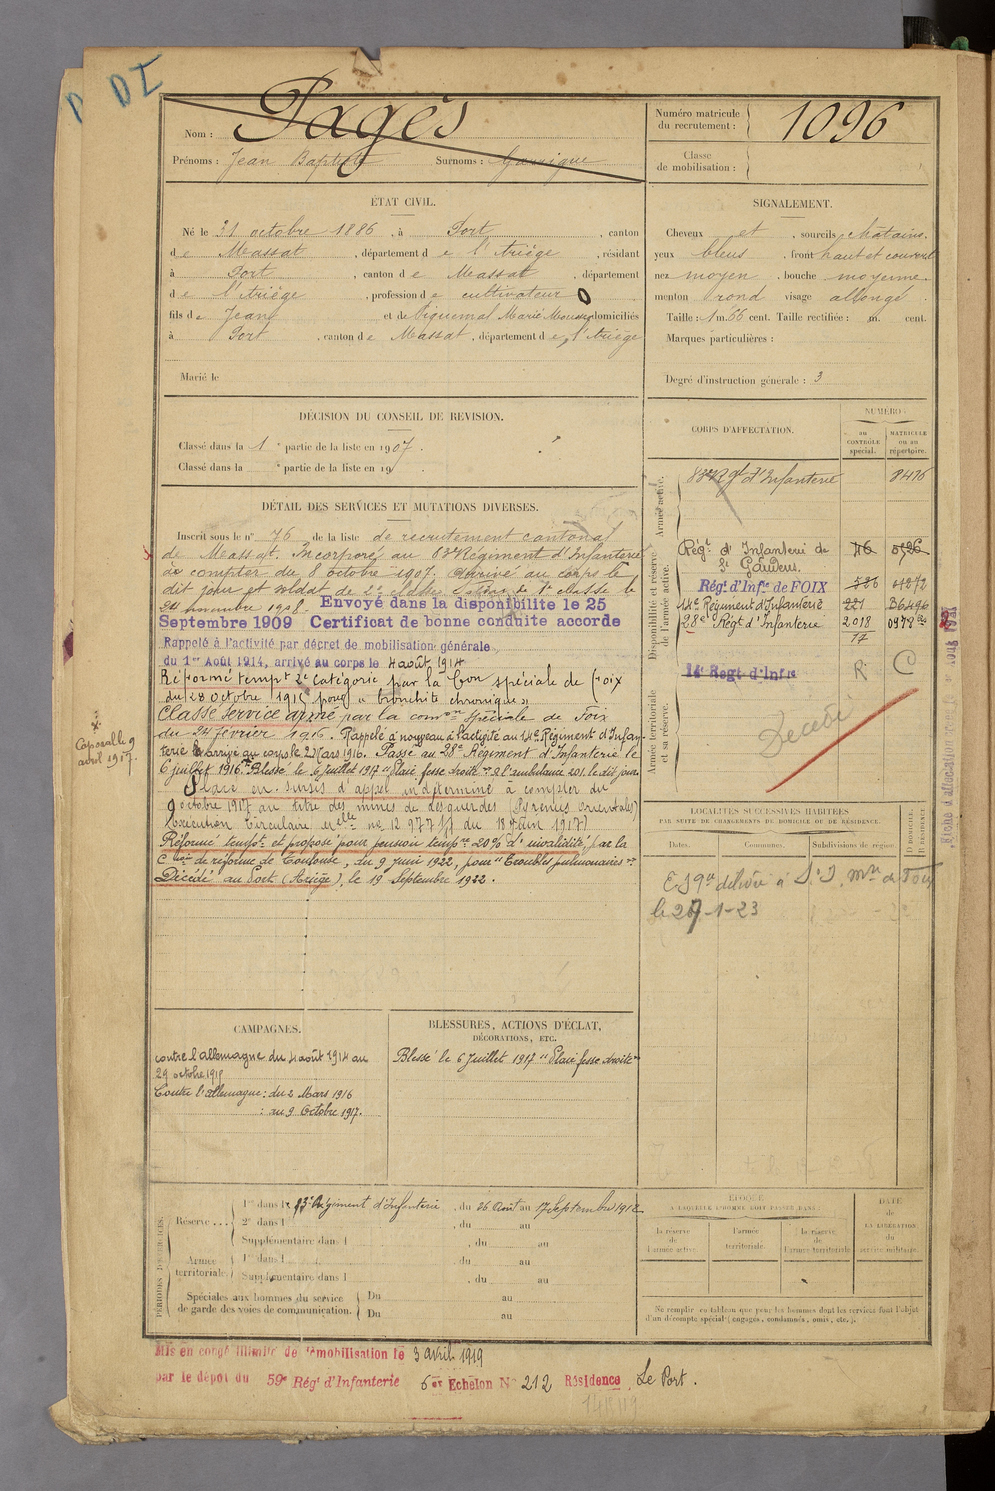 DI
Nom : Pagès
Prénoms : Jean Baptiste Surnoms : Garrigue
Numéro matricule du recrutement : 1096
Classe de mobilisation :
ÉTAT CIVIL.
Né le 31 octobre 1886, à Port, canton
de Massat, département de l'Ariège, résidant
à Port, canton de Massat, département
de l'Ariège, profession de cultivateur
fils de Jean et de Piquemal Marie domiciliés
à Port, canton de Massat, département de l'Ariège
Marié le
SIGNALEMENT.
Cheveux et, sourcils chatains.
yeux bleus, front haut et couvert
nez moyen, bouche moyenne
menton rond visage allongé.
Taille : 1 m. 66 cent. Taille rectifiée : m. cent.
Marques particulières :
Degré d'instruction générale : 3
DÉCISION DU CONSEIL DE REVISION.
Classé dans la 1e partie de la liste en 1907.
Classé dans la e partie de la liste en 19
CORPS D'AFFECTATION.
NUMÉRO
au CONTRÔLE spécial.
MATRICULE ou au répertoire.
Armée active.
83e Rgt d'Infanterie 8476
Disponibilité et réserve de l'armée active.
Régt d'Infanterie de St Gaudens. 46
Régt d'Infie de FOIX 04272
14e Régiment d'Infanterie 221 B6496
28e Régt d'Infanterie 2018
17
14e Regt d'Infie R. C
Armée territoriale et sa réserve.
Décédé
DÉTAIL DES SERVICES ET MUTATIONS DIVERSES.
Inscrit sous le n° 76 de la liste de recrutement cantonal
de Massat. Incorporé au 83e Régiment d'Infanterie
à compter du 8 octobre 1907. Arrivé au corps le
dit jour et soldat de 2e classe. Soldat de 1e classe le
24 novembre 1908. Envoyé dans la disponibilite le 25
Septembre 1909 Certificat de bonne conduite accorde
Rappelé à l'activité par décret de mobilisation générale
du 1er Août 1914, arrivé au corps le 4 août 1914
Réformé tempt 2e Catégorie par la Con spéciale de Foix
du 28 Octobre 1915 pour « bronchite chronique »
Classé Service armé par la comon spéciale de Foix
du 24 février 1916. Rappelé à nouveau à l'activité au 14e Régiment d'Infan-
terie & arrivé au corps le 2 Mars 1916. Passé au 28e Régiment d'Infanterie le
6 juillet 1916. Blessé le 6 juillet 1917 "Plaie fesse droite" à l'ambulance 201. le dit jour
Placé en sursis d'appel indéterminé à compter du
9 octobre 1917 au titre des mines de (Pyrénées Orientales)
(exécution Circulaire elle no 12 977 1/7 du 18 Juin 1917)
Réformé tempt et proposé pour pension tempre 20% d'invalidité, par la
Con de réforme de Toulouse, du 9 juin 1922, pour "troubles pulmonaires"
Décédé au Port (Ariège), le 19 Septembre 1922.
Caporal le 9
avril 1917.
LOCALITÉS SUCCESSIVES HABITÉES
PAR SUITE DE CHANGEMENTS DE DOMICILE OU DE RÉSIDENCE.
Dates. Communes. Subdivisions de région. D DOMICILE. R RÉSIDENCE
le 27-1-23
CAMPAGNES.
contre l'allemagne du 4 août 1914 au
29 octobre 1915
Contre l'allemagne : du 2 Mars 1916
: au 9 Octobre 1917.
BLESSURES, ACTIONS D'ÉCLAT,
DÉCORATIONS, ETC.
Blessé le 6 Juillet 1917 "Plaie fesse droite"
PÉRIODES D'EXERCICES.
Réserve 1re dans le 83e Régiment d'Infanterie, du 26 Août au 17 Septembre 1912
2e dans l , du au
Supplémentaire dans l , du au
Armée territoriale. 1re dans l , du au
Supplémentaire dans l , du au
Spéciales aux hommes du service
de garde des voies de communication. Du au
Du au
ÉPOQUE
À LAQUELLE L'HOMME DOIT PASSER DANS :
la réserve de l'armée active
l'armée territoriale.
la réserve de l'armée territoriale
DATE de LA LIBÉRATION du service militaire.
Ne remplir ce tableau que pour les hommes dont les services font l'objet
d'un décompte spécial (engagés, condamnés, omis, etc.).
Mis en congé illimité de démobilisation le 3 avril 1919
par le dépot du 59e Régt d'Infanterie 6e Echelon N° 212 Résidence Le Port.